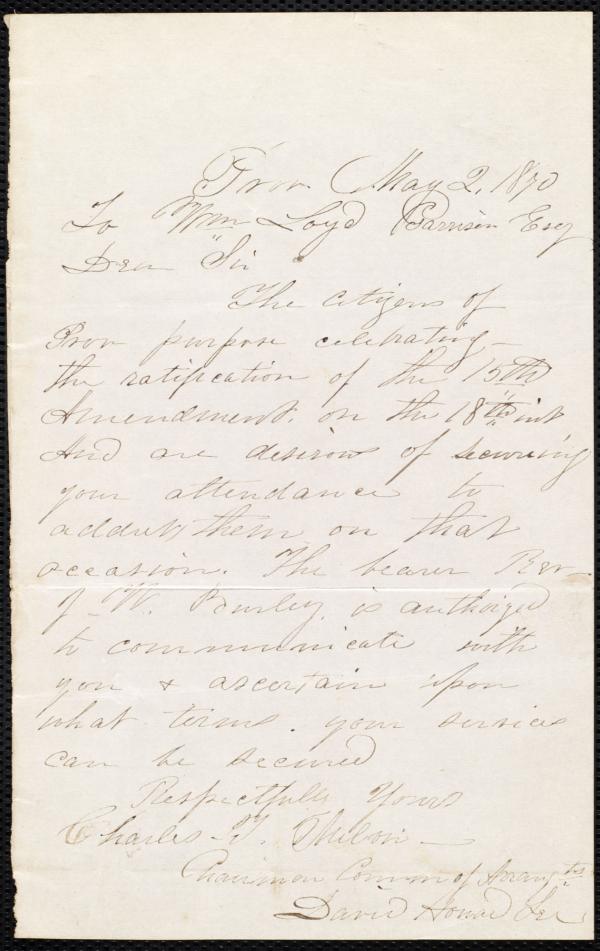 Prov. May 2, 1870
To Wm Loyd Garrison Esq
Dear Sir
The citizens of
Prov purpose celebrating
the ratification of the 15th
Amendment. on the 18th inst
And are desirous of securing
your attendance to
address them on that
occasion. The bearer Rev
J. W. Burley, is authorized
to communicate with
you & ascertain upon
what terms. your services
can be secured
Respectfully Yours
Charles
Chairman Comm of Arangts
David Howard Sec